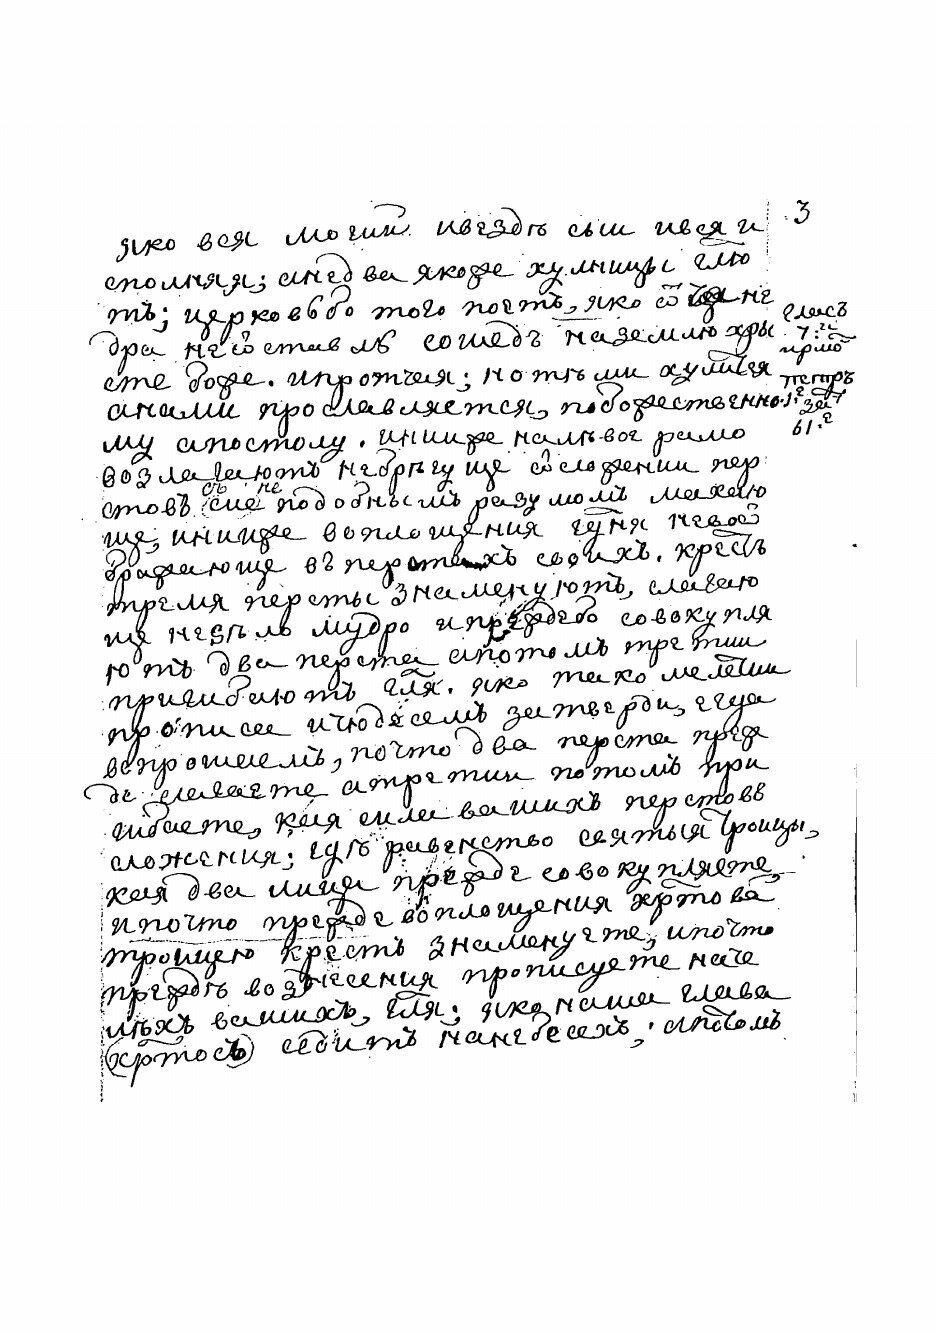 3
яко вся могии. ивездѣ сыи ився и
сполняя; анедва якоже хулницы глю
тъ; церковъбо того поетъ, яко ѿ оца не
дра неѿставль сошедъ наземлю хры
сте боже. ипротчая; но тѣми хулится
анами прославляется, побожественно
му апостолу. инииже налѣвое рамо
возлагаютъ небрѣгуще ѿсложении пер
стовъ сие неподобнымъ разумомъ махаю
ще, инииже воплощения гдня невоо
бражающе вперстахъ своихъ. крестъ
тремя персты знаменуютъ, слагаю
ще незѣло мудро ипреждебо совокупля
ютъ два перста апотомъ третии
пригибаютъ гля. яко тако мелетии
прописа ичюдесемъ затверди, егда
вопрошаемъ, почто два перста преж
де слагаете атретии потомъ при
гибаете, кая сила вашихъ перстовъ
сложения; гдѣ равенство святыя троицы,
кая два лица прежде совокупляете,
ипочто прежде воплощения хртова
троицею крестъ знаменуете, ипочто
прежде вознесения прописуете наче
лѣхъ вашихъ, гля; яко наша глава
(хртосъ) седитъ нанебесехъ, апотомъ
гласъ
7: и
ирмо
петръ
1: е
за
61: е